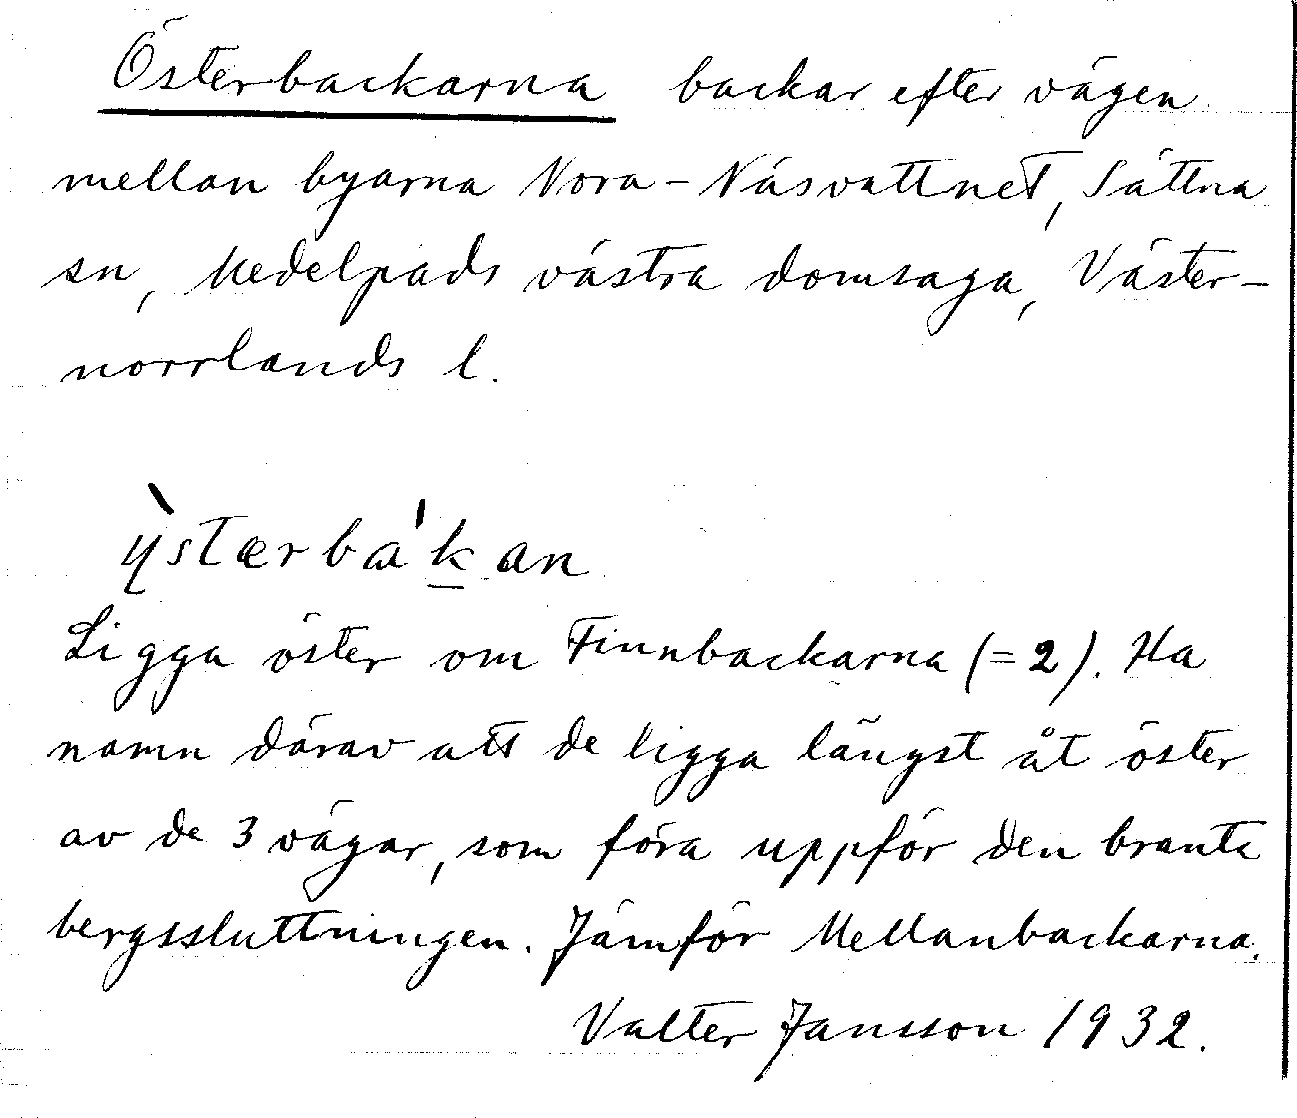 Österbackarna backar efter vägen
mellan byarna Nora - Näsvattnet, Sättna
sn, Medelpads västra domsaga, Väster-
norrlands l.
ỳ̨stærbɑ'k̲an
Ligga öster om Finnbackarna (= 2). Ha
namn därav att de ligga längst åt öster
av de 3 vägar, som föra uppför den branta
bergssluttningen. Jämför Mellanbackarna.
Valter Jansson 1932.